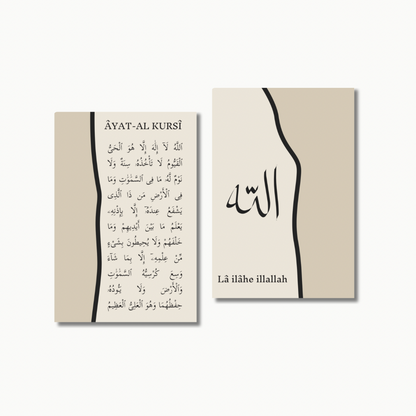 ÂYAT-AL KURSÎ
اَللّٰهُ لَآ اِلٰهَ اِلَّا هُوَ اَلْحَىُّ
الْقَيُّومُ لَا تَأْخُذُهُۥ سِنَةٌ وَلَا
نَوْمٌ لَّهُۥ مَا فِى السَّمٰوٰتِ وَمَا
فِى الْأَرْضِ مَن ذَا الَّذِى
يَشْفَعُ عِندَهُۥٓ إِلَّا بِإِذْنِهِۦ
يَعْلَمُ مَا بَيْنَ أَيْدِيهِمْ وَمَا
خَلْفَهُمْ وَلَا يُحِيطُونَ بِشَىْءٍ
مِّنْ عِلْمِهِۦٓ إِلَّا بِمَا شَآءَ
وَسِعَ كُرْسِيُّهُ السَّمٰوٰتِ
وَالْأَرْضَ وَلَا يَـُٔودُهُۥ
حِفْظُهُمَا وَهُوَ الْعَلِىُّ الْعَظِيمُ
الله
Lâ ilâhe illallah